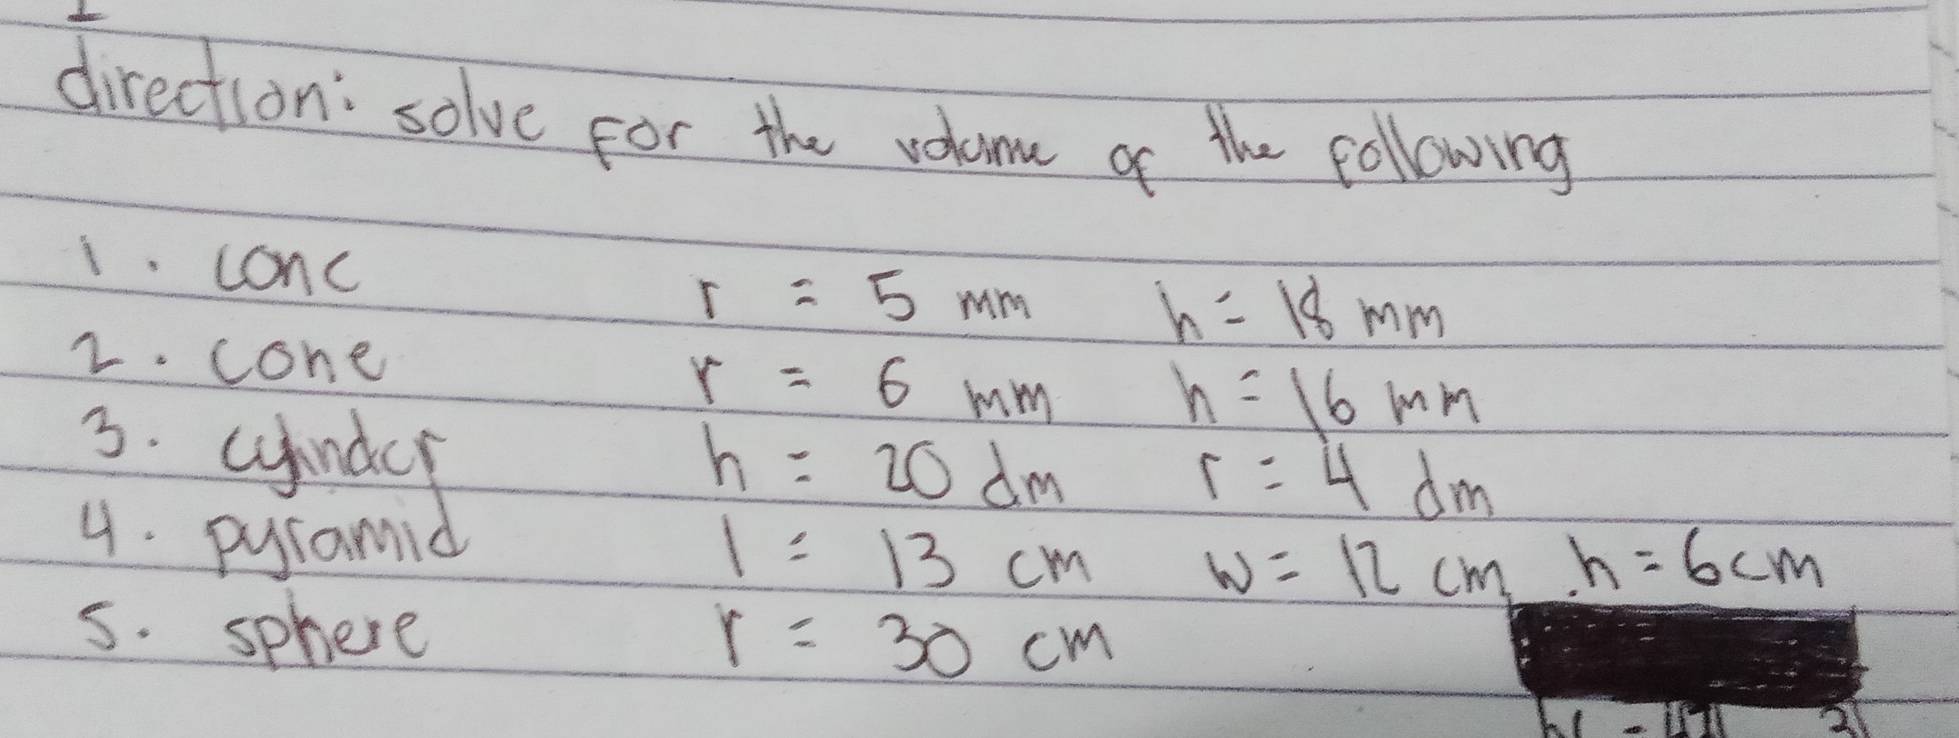 direction: solve for the volume of the following
1. cone r = 5 mm h = 18 mm
2. cone r = 6 mm h = 16 mm
3. cylinder h = 20 dm r = 4 dm
4. pyramid l = 13 cm w = 12 cm h = 6cm
5. sphere r = 30 cm